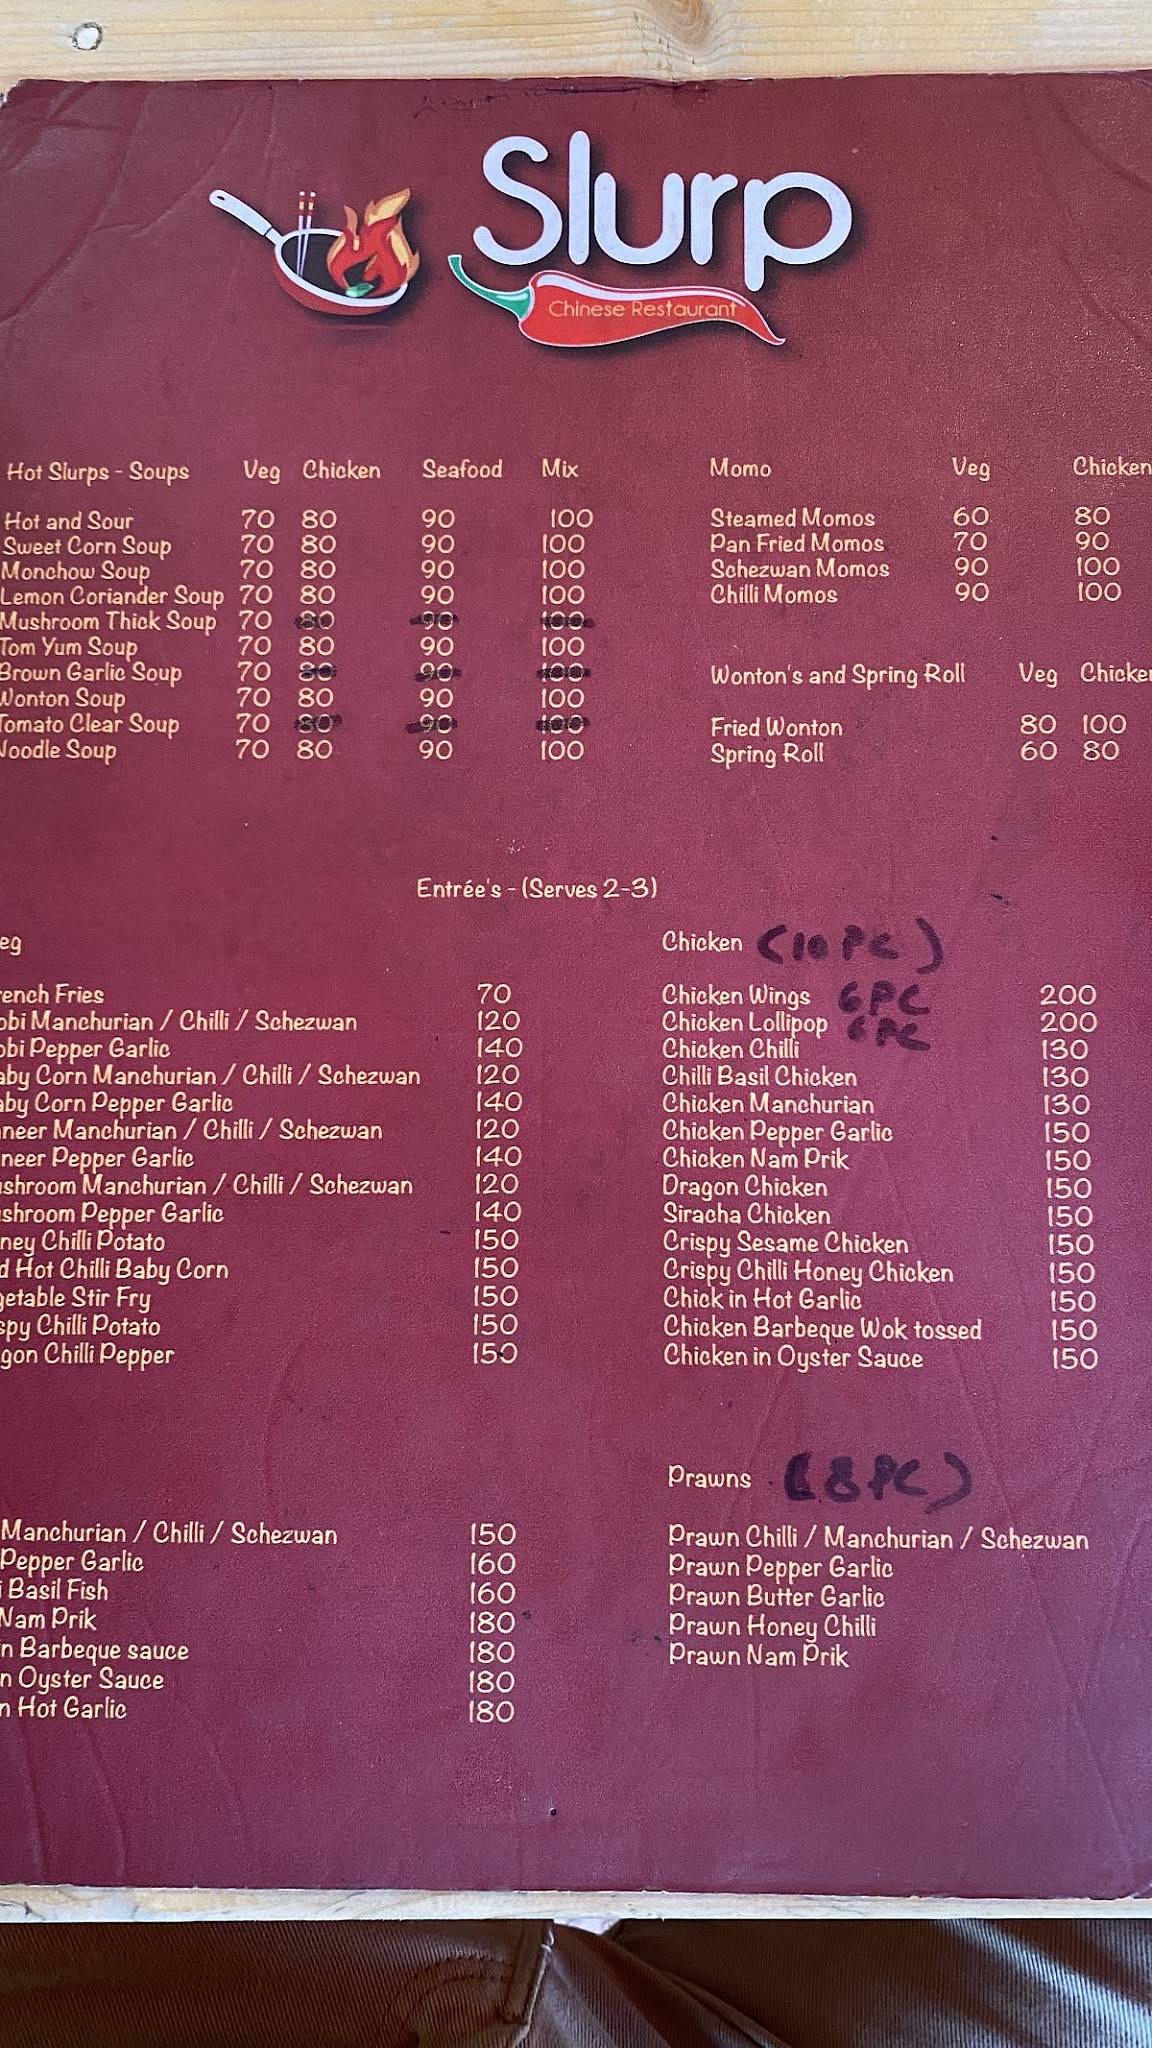 Slurp
Chinese Restaurant
Hot Slurps - Soups Veg Chicken Seafood Mix
Hot and Sour 70 80 90 100
Sweet Corn Soup 70 80 90 100
Monchow Soup 70 80 90 100
Lemon Coriander Soup 70 80 90 100
Mushroom Thick Soup 70 80 90 100
Tom Yum Soup 70 80 90 100
Brown Garlic Soup 70 80 90 100
Wonton Soup 70 80 90 100
Tomato Clear Soup 70 80 90 100
Noodle Soup 70 80 90 100
Momo Veg Chicken
Steamed Momos 60 80
Pan Fried Momos 70 90
Schezwan Momos 90 100
Chilli Momos 90 100
Wonton's and Spring Roll Veg Chicken
Fried Wonton 80 100
Spring Roll 60 80
Entrée's - (Serves 2-3)
eg
rench Fries 70
obi Manchurian / Chilli / Schezwan 120
obi Pepper Garlic 140
aby Corn Manchurian / Chilli / Schezwan 120
aby Corn Pepper Garlic 140
neer Manchurian / Chilli / Schezwan 120
neer Pepper Garlic 140
shroom Manchurian / Chilli / Schezwan 120
shroom Pepper Garlic 140
ney Chilli Potato 150
d Hot Chilli Baby Corn 150
getable Stir Fry 150
spy Chilli Potato 150
gon Chilli Pepper 150
Chicken (10 PC)
Chicken Wings 6 PC 200
Chicken Lollipop 6 PC 200
Chicken Chilli 130
Chilli Basil Chicken 130
Chicken Manchurian 130
Chicken Pepper Garlic 150
Chicken Nam Prik 150
Dragon Chicken 150
Siracha Chicken 150
Crispy Sesame Chicken 150
Crispy Chilli Honey Chicken 150
Chick in Hot Garlic 150
Chicken Barbeque Wok tossed 150
Chicken in Oyster Sauce 150
Manchurian / Chilli / Schezwan 150
Pepper Garlic 160
i Basil Fish 160
Nam Prik 180
n Barbeque sauce 180
n Oyster Sauce 180
n Hot Garlic 180
Prawns (8 PC)
Prawn Chilli / Manchurian / Schezwan
Prawn Pepper Garlic
Prawn Butter Garlic
Prawn Honey Chilli
Prawn Nam Prik